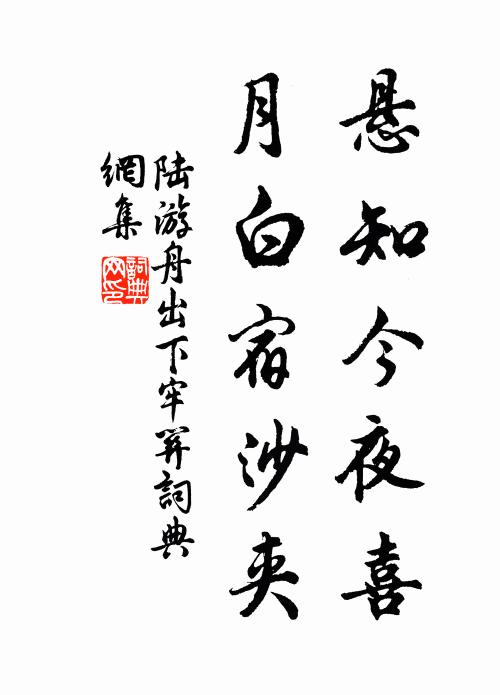 悬知今夜喜
月白宿沙夹
陆游舟出下牢关詞典
網集
詞典網印